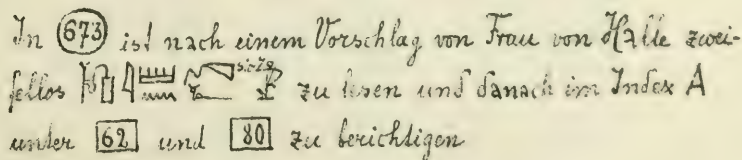 In 673 ist nach einem Vorschlag von Frau von Halle zwei-
fellos sic zu lesen und danach im Index A
unter 62 und 80 zu berichtigen